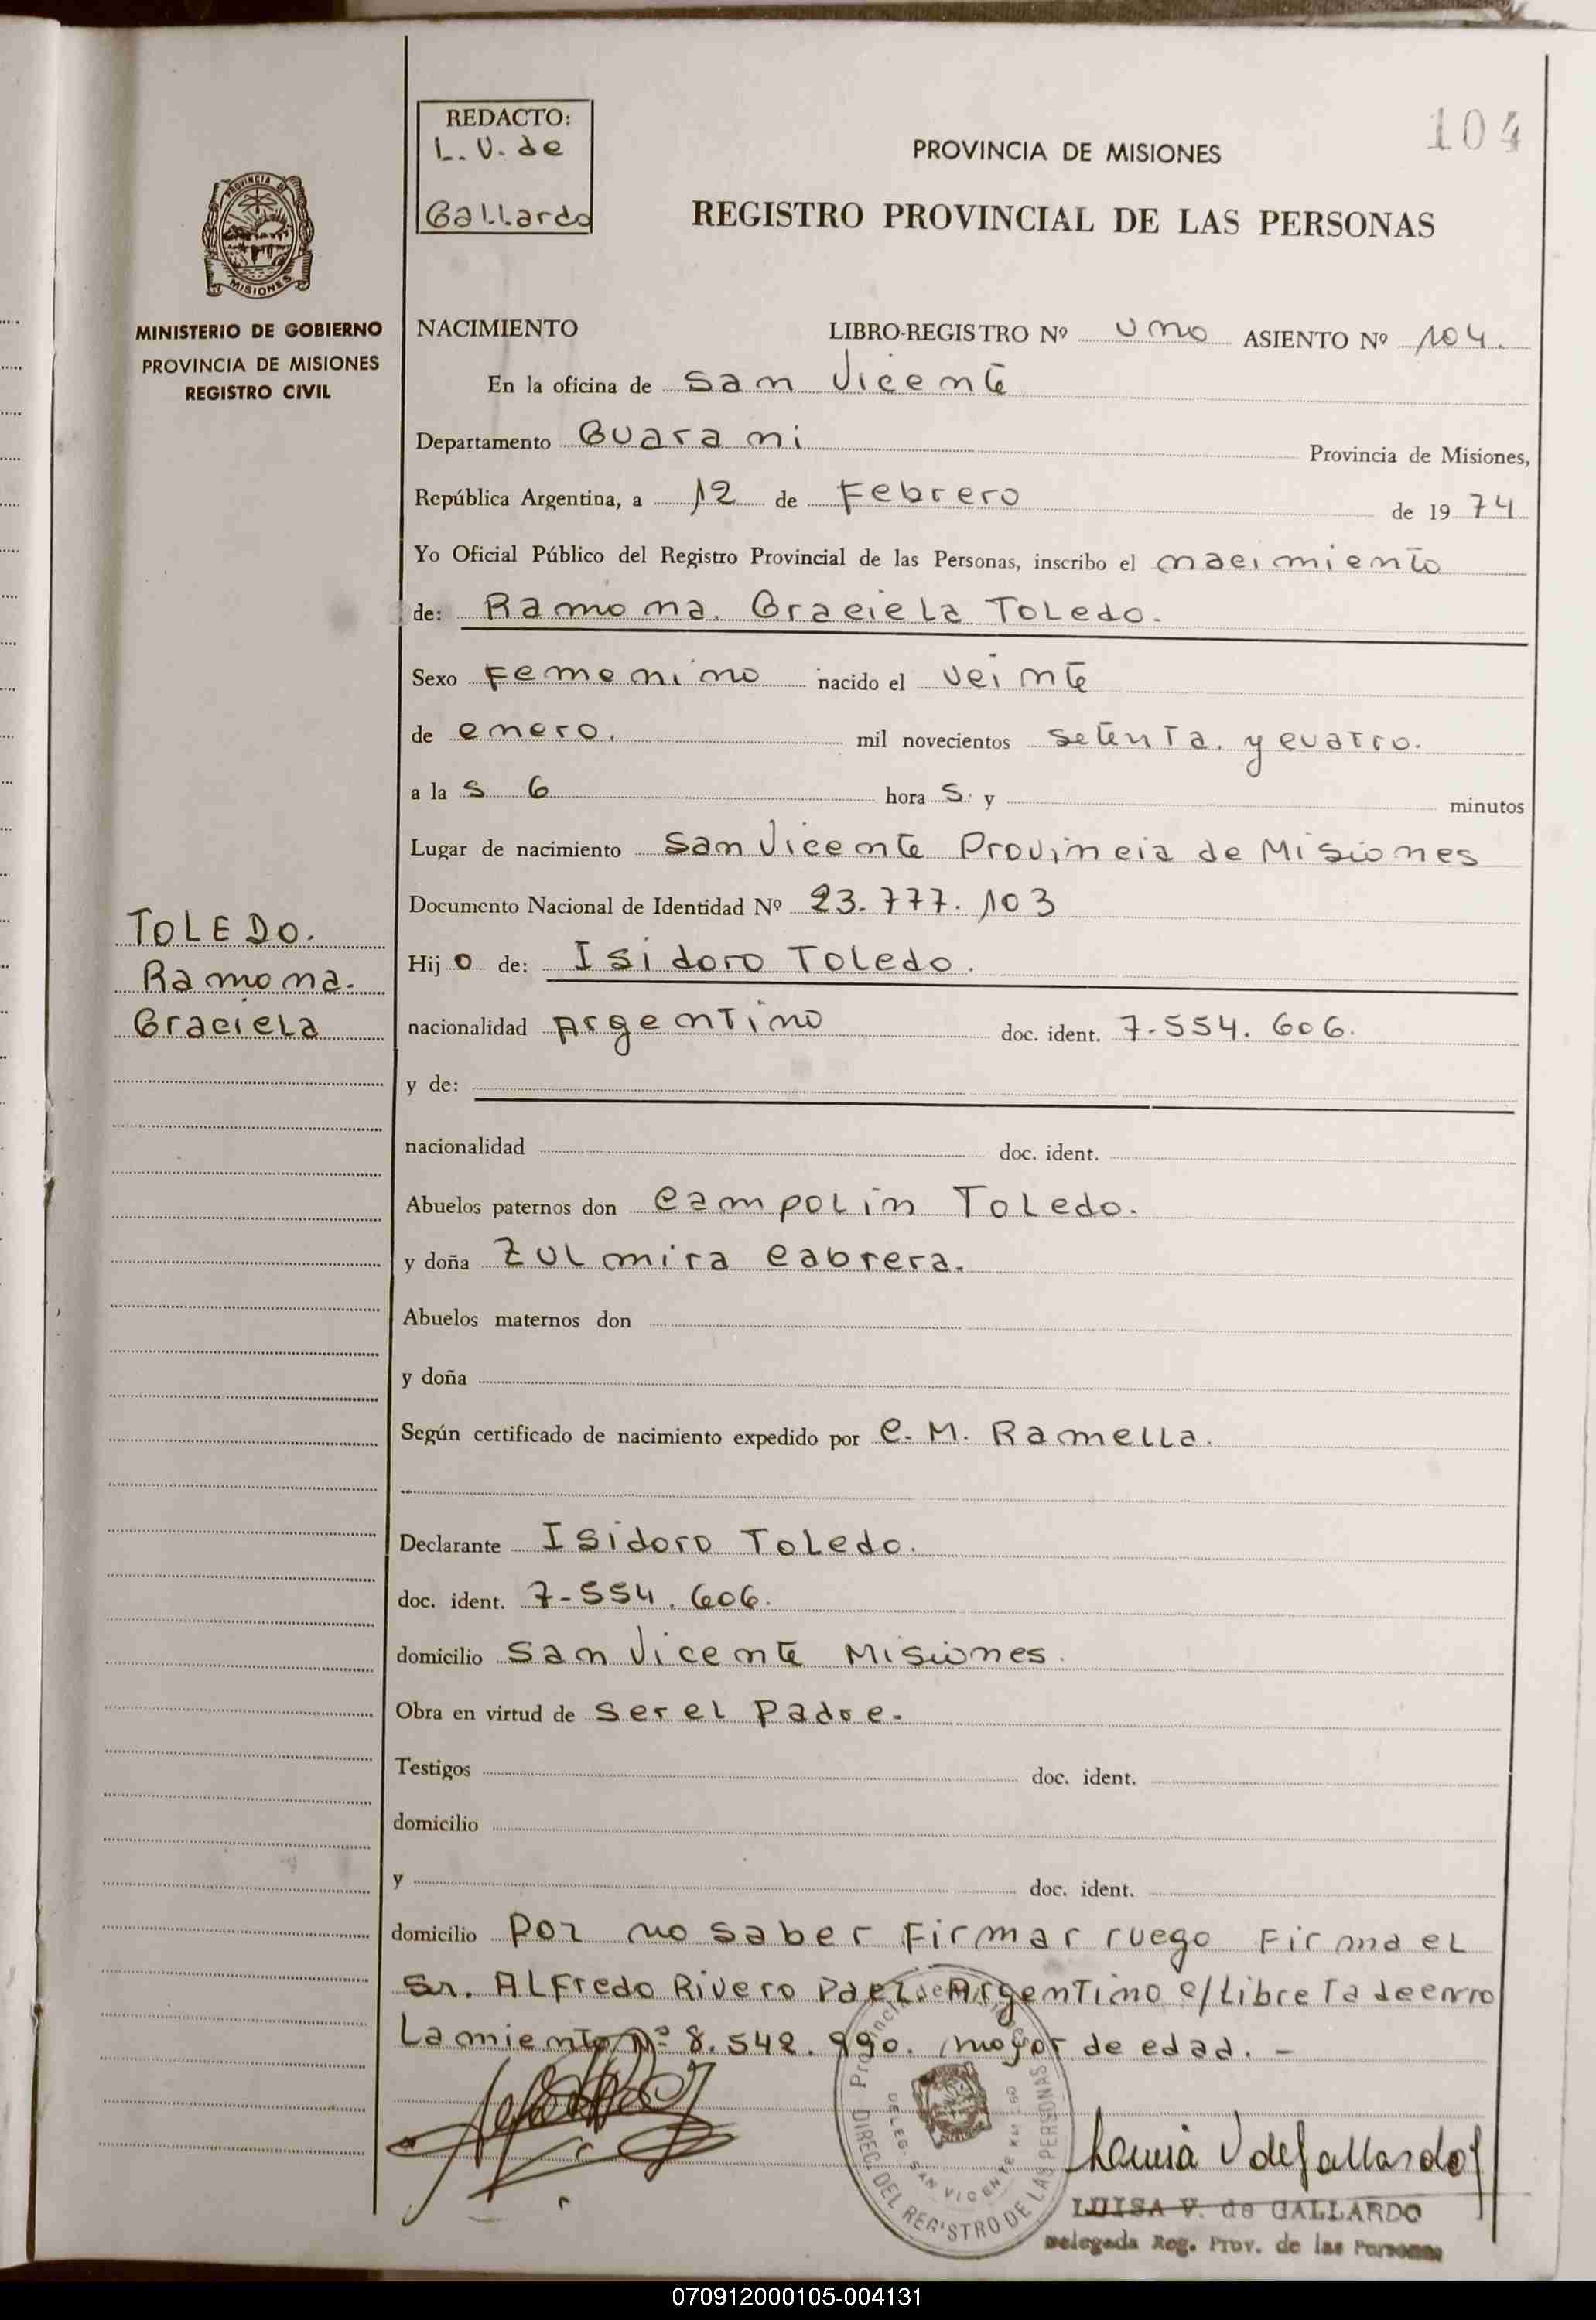 REDACTO:
L. V. de
Gallardo
104
PROVINCIA DE MISIONES
REGISTRO PROVINCIAL DE LAS PERSONAS
PROVINCIA DE
MISIONES
MINISTERIO DE GOBIERNO
PROVINCIA DE MISIONES
REGISTRO CIVIL
NACIMIENTO LIBRO-REGISTRO Nº uno ASIENTO Nº 104.
En la oficina de San Vicente
Departamento Guarani Provincia de Misiones,
República Argentina, a 12 de Febrero de 1974
Yo Oficial Público del Registro Provincial de las Personas, inscribo el nacimiento
de: Ramona. Graciela Toledo.
Sexo Femenino nacido el veinte
de enero. mil novecientos setenta. y cuatro.
a las 6 horas. y minutos
Lugar de nacimiento San Vicente Provincia de Misiones
Documento Nacional de Identidad Nº 23.777.103
TOLEDO.
Ramona.
Graciela
Hijo de: Isidoro Toledo.
nacionalidad Argentino doc. ident. 7-554.606.
y de:
nacionalidad doc. ident.
Abuelos paternos don Campolin Toledo.
y doña Zulmira Cabrera.
Abuelos maternos don
y doña
Según certificado de nacimiento expedido por C. M. Ramella.
Declarante Isidoro Toledo.
doc. ident. 7-554.606.
domicilio San Vicente Misiones.
Obra en virtud de ser el Padre.
Testigos doc. ident.
domicilio
y doc. ident.
domicilio Por no saber firmar ruego firma el
Sr. Alfredo Rivero Paez. Argentino c/Libreta de enro
lamiento Nº 8.542.990. mayor de edad. -
DIREC. DEL REGISTRO DE LAS PERSONAS
DELEG. SAN VICENTE KM
Louisa V de Gallardo
LUISA V. de GALLARDO
Delegada Reg. Prov. de las Personas
070912000105-004131